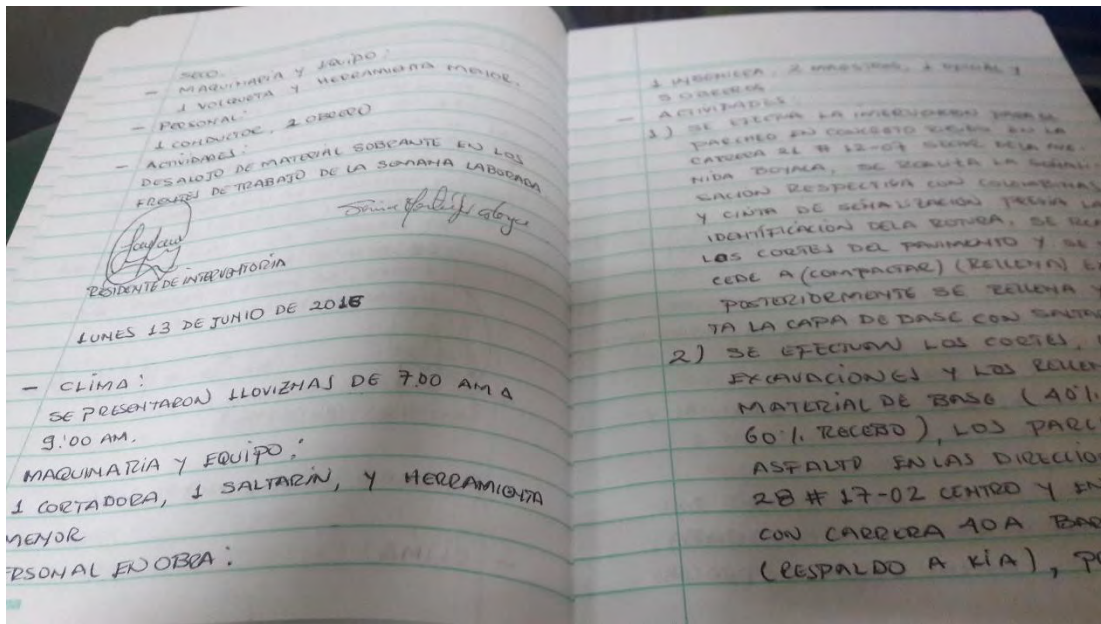 SECO.
- MAQUINARIA Y EQUIPO:
1 VOLQUETA Y HERRAMIENTA MENOR.
- PERSONAL:
1 CONDUCTOR, 1 OBRERO
- ACTIVIDADES:
DESALOJO DE MATERIAL SOBRANTE EN LOS
FRENTES DE TRABAJO DE LA SEMANA LABORADA
RESIDENTE DE INTERVENTORIA
LUNES 13 DE JUNIO DE 2016
- CLIMA:
SE PRESENTARON LLOVIZNAS DE 7.00 AM A
9:00 AM.
MAQUINARIA Y EQUIPO:
1 CORTADORA, 1 SALTARIN, Y HERRAMIENTA
MENOR
ERSONAL EN OBRA:
1 INGENIERA, 2 MAESTROS, 1 OFICIAL Y
5 OBREROS
- ACTIVIDADES:
1) SE EFECTUA LA INTERVENCION PARA EL
PARCHEO EN CONCRETO EN LA
CARRERA 21 # 12-07 DE LA AVE-
NIDA BOYACA, SE REALIZA LA SEÑALI
SACION RESPECTIVA CON COLOMBINAS
Y CINTA DE SEÑALIZACION PREVIA LA
IDENTIFICACION DE LA ROTURA, SE
LOS CORTES DEL PAVIMENTO Y SE
CEDE A (COMPACTAR) (RELLENA) E
POSTERIORMENTE SE RELLENA Y
TA LA CAPA DE BASE CON SALTA
2) SE EFECTUAN LOS CORTES,
EXCAVACIONES Y LOS RELLEN
MATERIAL DE BASE (40%
60% RECEBO), LOS PARC
ASFALTO EN LAS DIRECCIO
28 # 17-02 CENTRO Y EN
CON CARRERA 40A BAR
(RESPALDO A KIA), P